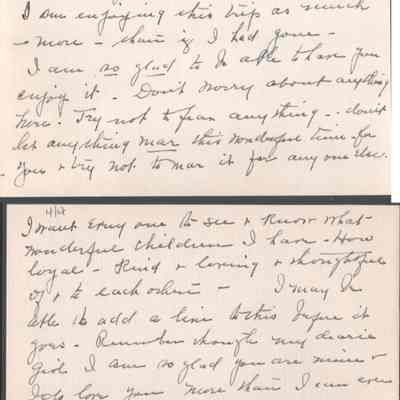 I am enjoying this trip as much
- more - than if I had gone -
I am so glad to be able to have you
enjoy it - Don't worry about anything
here. Try not to fear anything - - don't
let anything mar this wonderful time for
you & try not to mar it for any one else.
I want every one to see & know what
wonderful children I have - How
loyal - Kind & loving & thoughtful
of & to each other - I may be
able to add a line to this before it
goes - Remember though my dearie
girl I am so glad you are mine &
I do love you more than I can ever